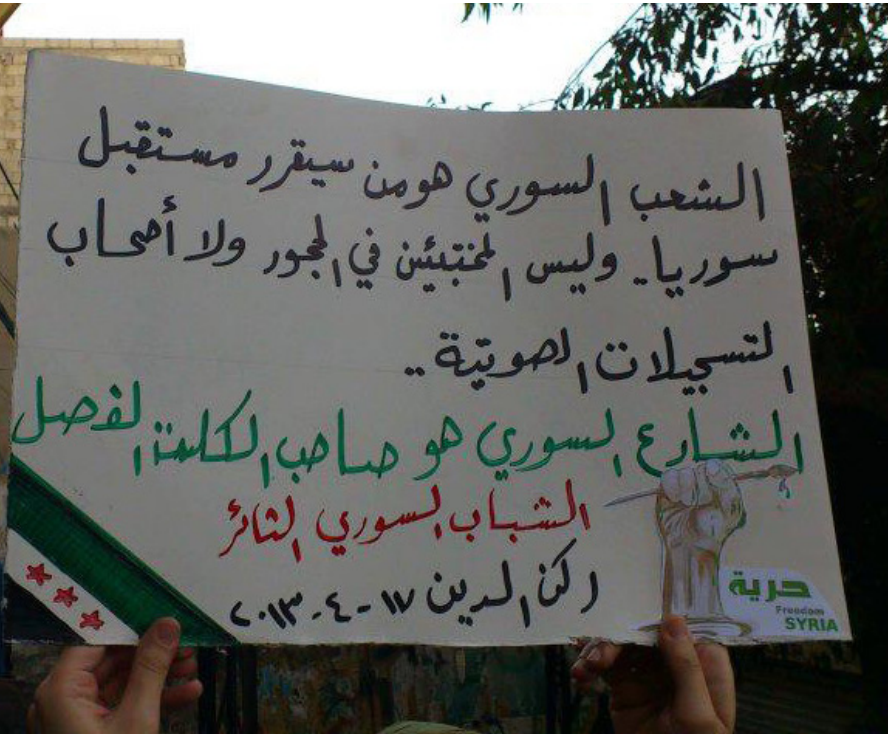 الشعب السوري هو من سيقرر مستقبل
سوريا.. وليس المختبئين في الجحور ولا أصحاب
التسجيلات الصوتية ..
الشارع السوري هو صاحب الكلمة الفصل
الشباب السوري الثائر
ركن الدين ١٧-٤-٢٠١٣
حرية
Freedom
SYRIA